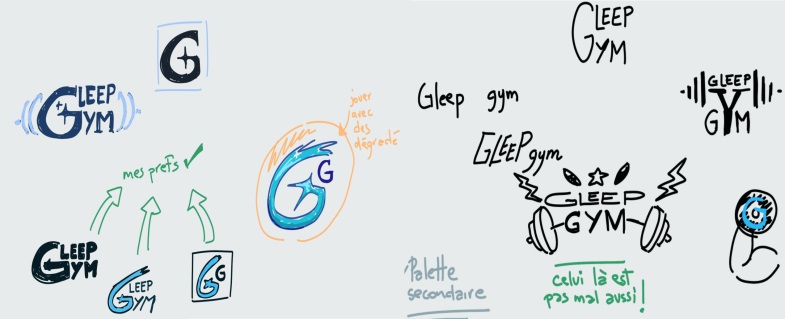 G
GLEEP
GYM
mes prefs
GLEEP
GYM
GLEEP
GYM
G
G
G
G
jouer
avec
des
dégradé
GLEEP
GYM
Gleep gym
GLEEP gym
GLEEP
GYM
GLEEP
GYM
G
Palette
secondaire
celui là est
pas mal aussi !